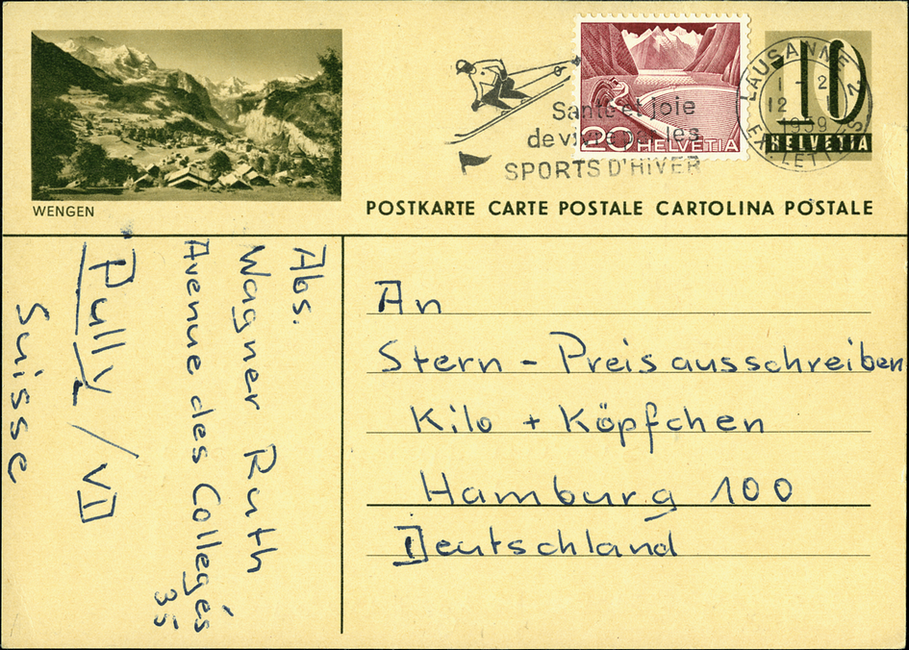 WENGEN
Santé et joie
de vivre par les
SPORTS D'HIVER
20 HELVETIA
LAUSANNE 2
1 - 2
12
1959
EX. LETTRES
10
HELVETIA
POSTKARTE CARTE POSTALE CARTOLINA POSTALE
Abs.
Wagner Ruth
Avenue des Collegés
35
Pully / VD
Suisse
An
Stern - Preisausschreiben
Kilo + Köpfchen
Hamburg 100
Deutschland